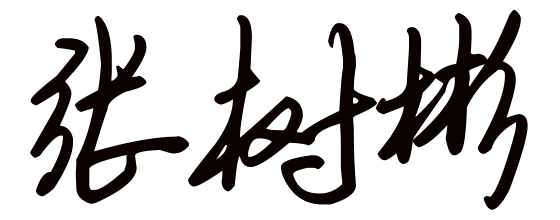 张树彬